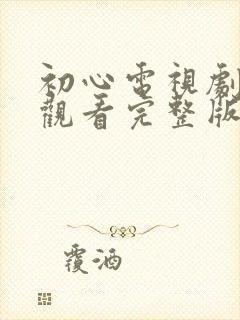 初心電視劇
觀看完整版
覆酒